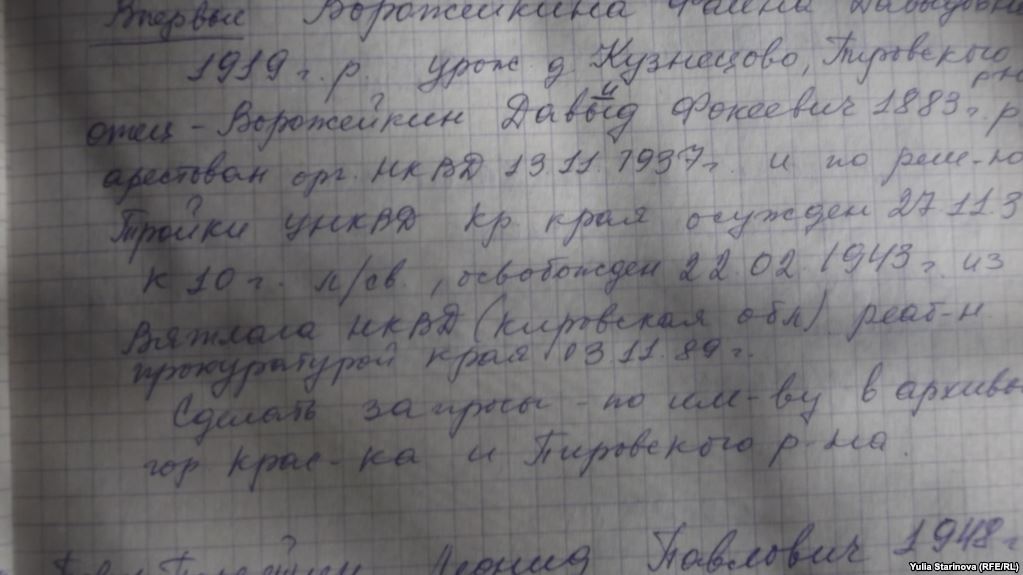 Впервые Ворожейкина Фаина Давыдовна
1919 г. р. урож д Кузнецово, Пировского
р-н
отец - Ворожейкин Давыд Фокеевич 1883 г. р
и
арестован орг. НКВД 13.11.1937 г. и по реш-ю
Тройки УНКВД Кр. края осужден 27.11.3
к 10 г. л/св., освобожден 22.02.1943 г. из
Вятлага НКВД (Кировская обл) реаб-н
прокуратурой края 03.11.89 г.
Сделать запросы - по им-ву в архивы
гор Крас-ка и Пировского р-на.
Леонид Павлович 1948 г
Yulia Starinova (RFE/RL)